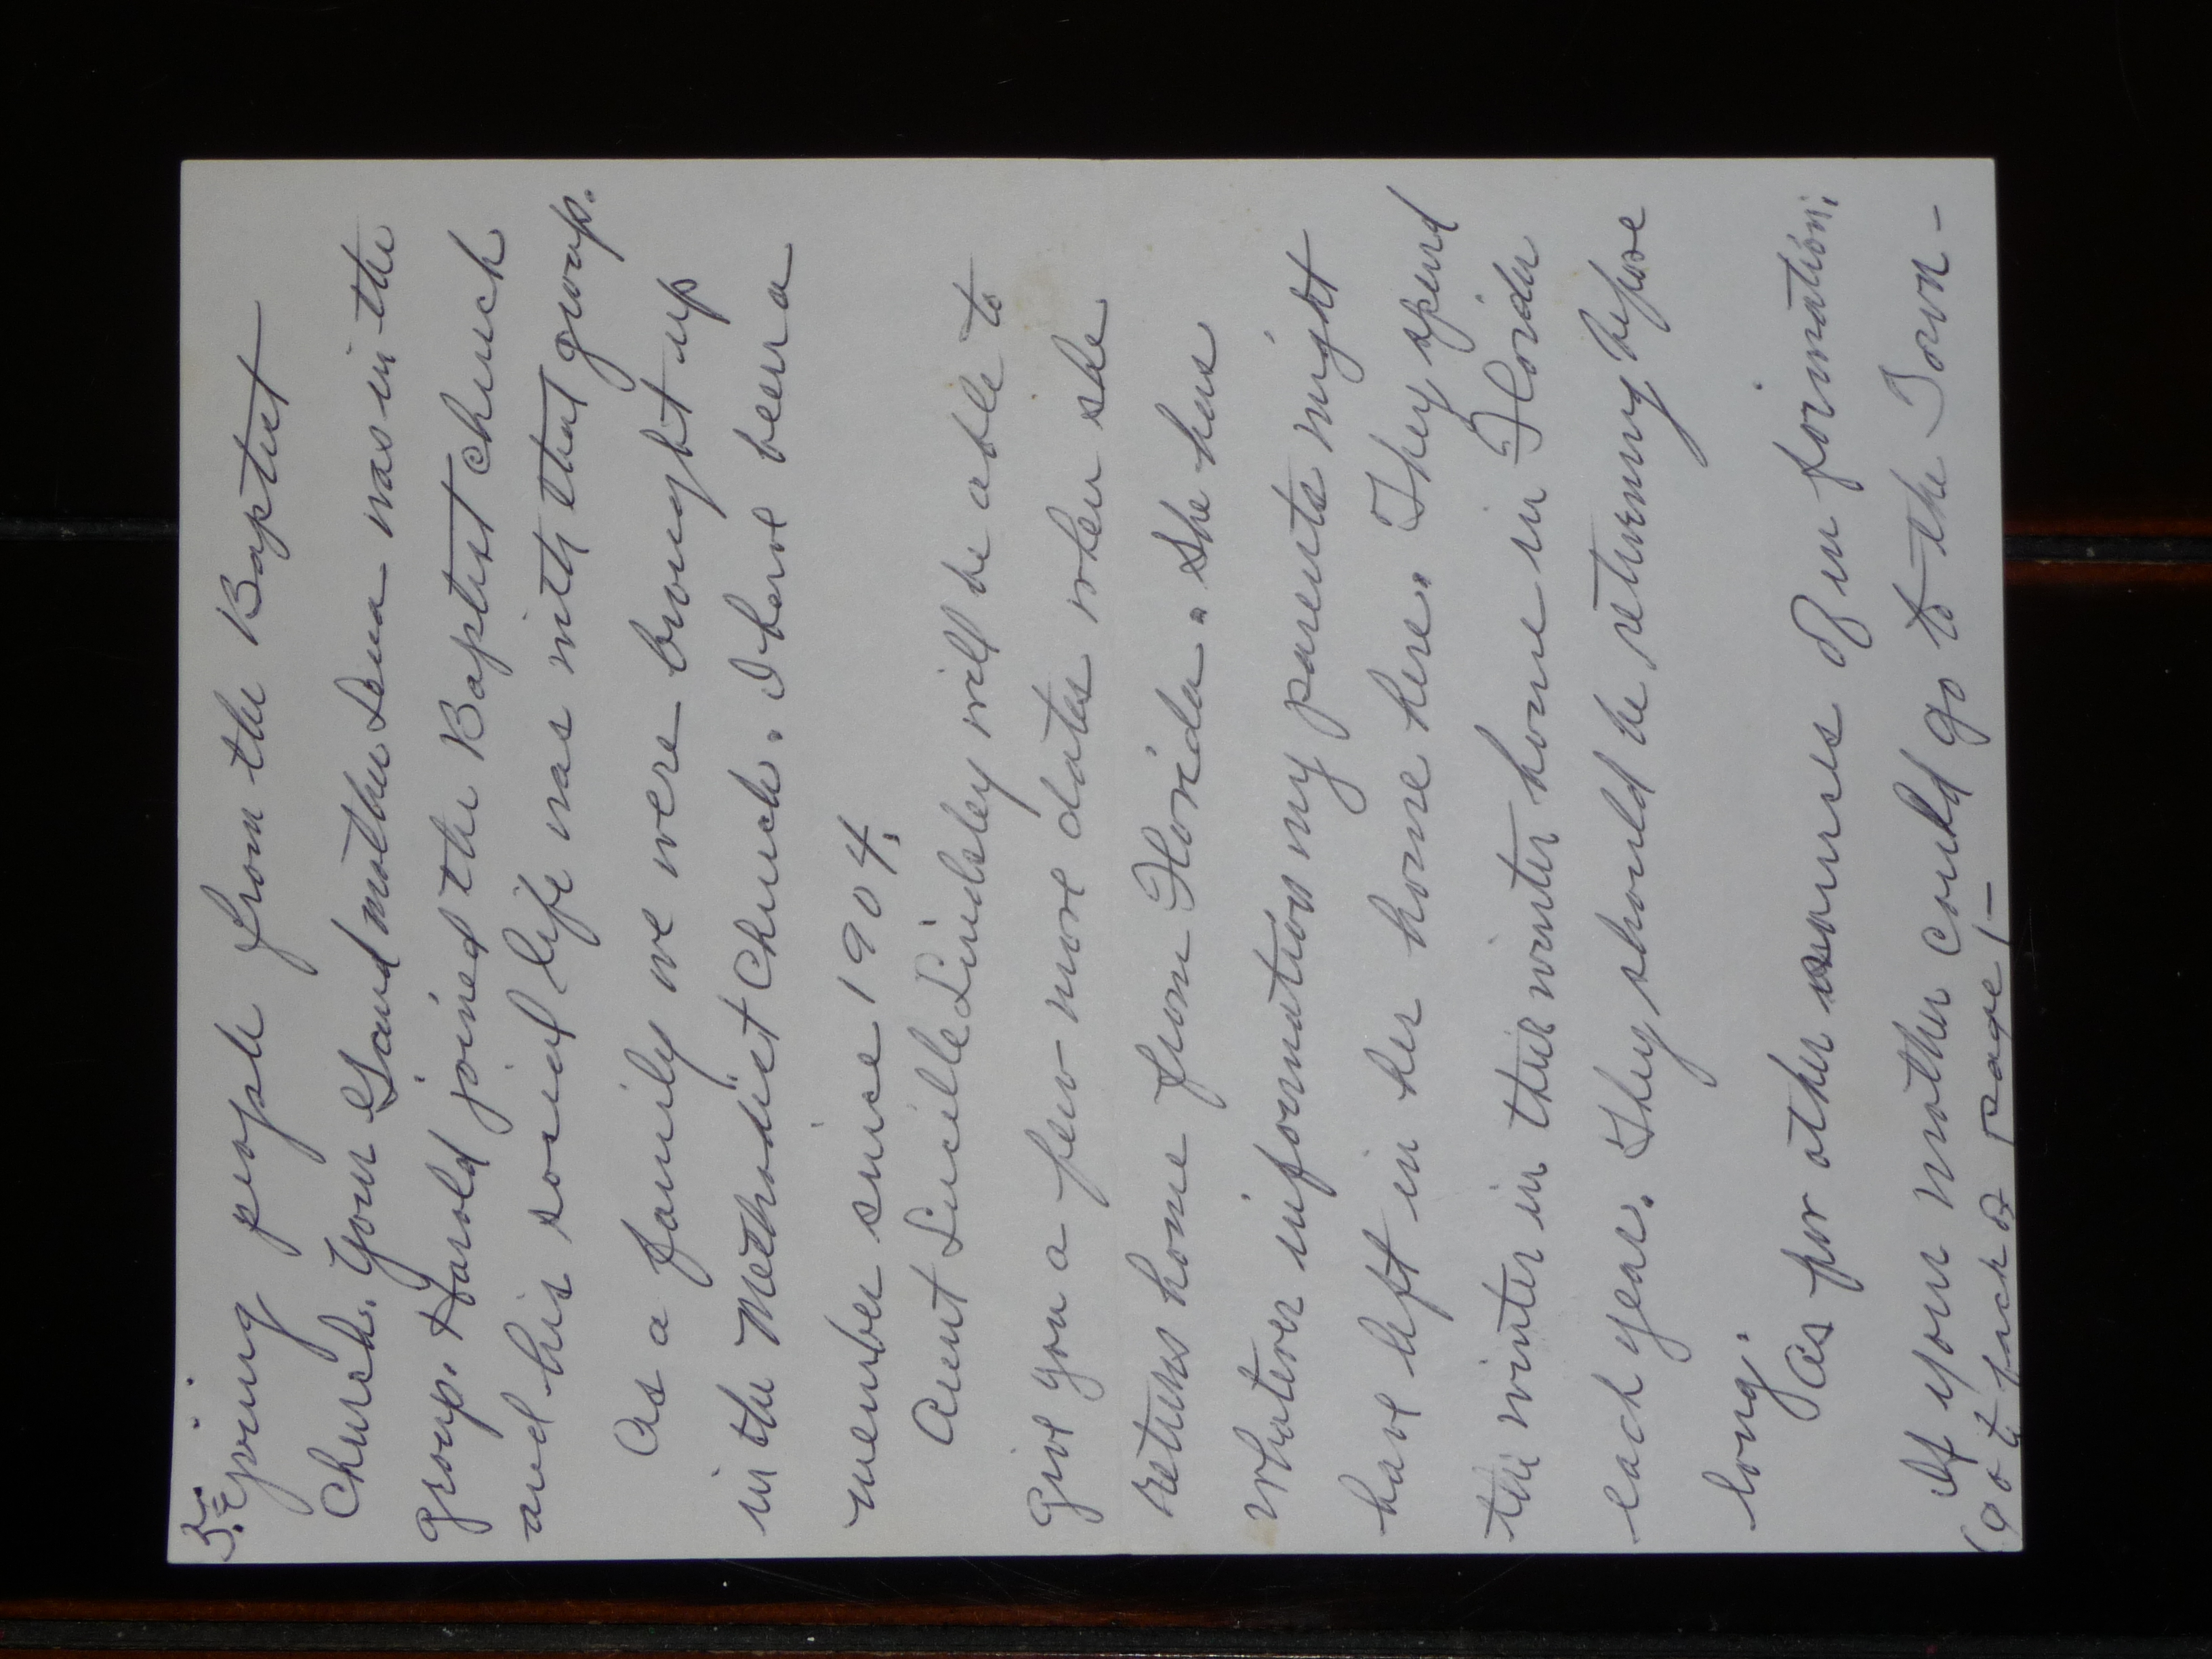 5.
young people from the Baptist
Church. Your Grandmother Lena was in the
group. Harold joined the Baptist church
and his social life was with that group.
As a family we were brought up
in the Methodist Church. I have been a
member since 1904.
Aunt Lucille Lindsley will be able to
give you a few more dates when she
returns home from Florida. She has
whatever information my parents might
have left in her home here. They spend
the winter in their winter home in Florida
each year. They should be returning before
long.
As for other sources of in formation.
If your mother could go to the Town-
(go to back of page 1-